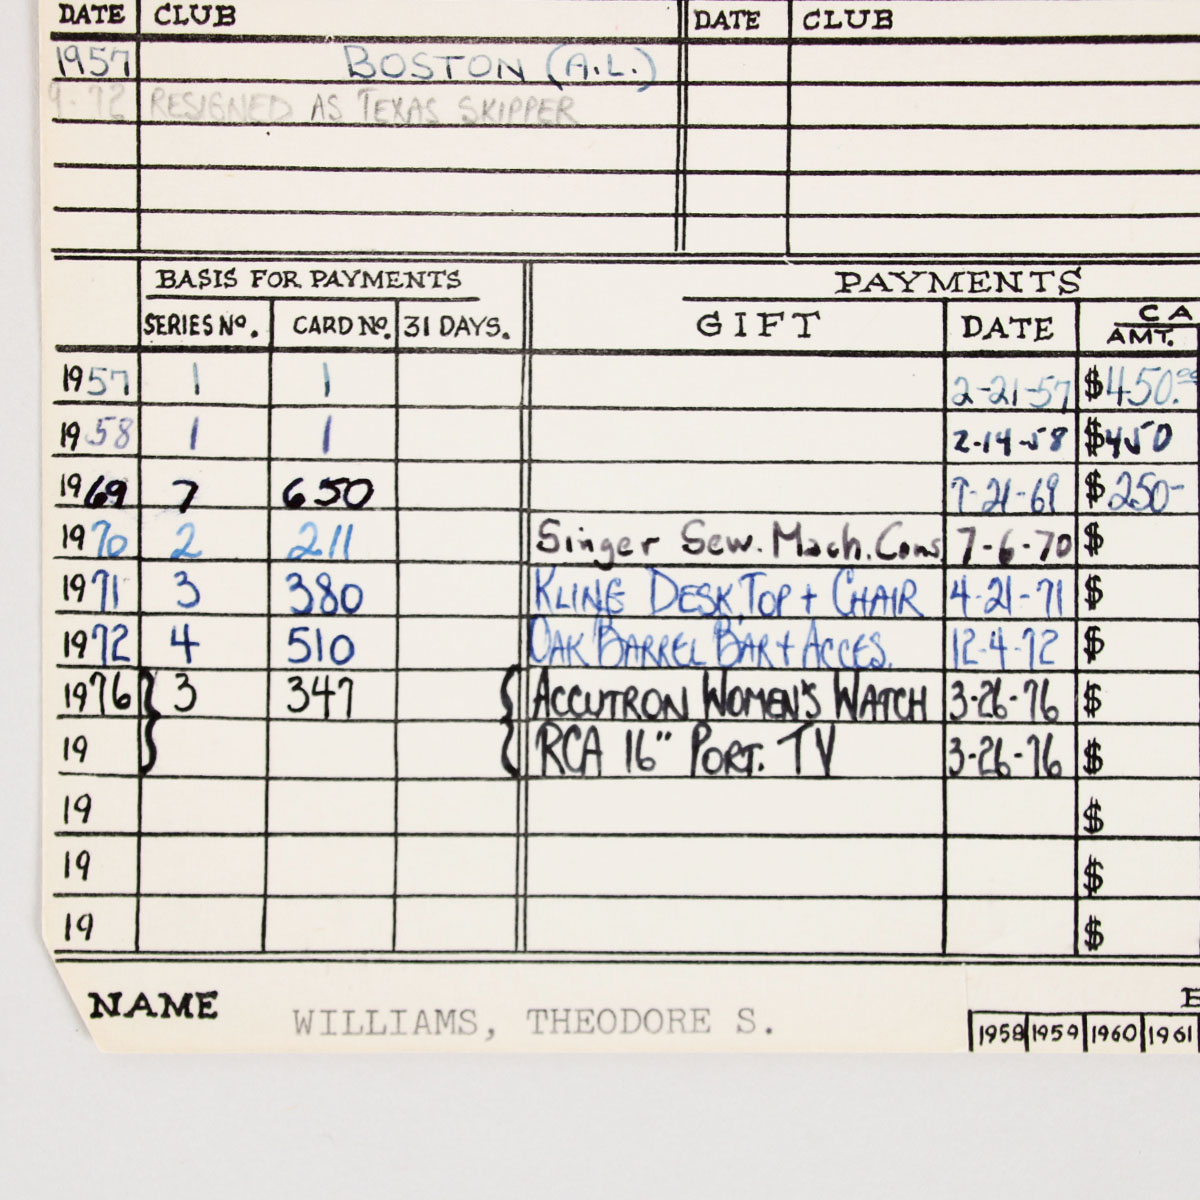 DATE CLUB DATE CLUB
1957 BOSTON (A.L.)
9-72 RESIGNED AS TEXAS SKIPPER
BASIS FOR PAYMENTS PAYMENTS
SERIES No. CARD No. 31 DAYS. GIFT DATE CA
AMT.
1957 1 1 2-21-57 $450.00
1958 1 1 2-14-58 $450
1969 7 650 7-21-69 $250-
1970 2 211 Singer Sew. Mach. Cons 7-6-70 $
1971 3 380 KLING DESK, TOP + CHAIR 4-21-71 $
1972 4 510 OAK BARREL BAR + ACCES. 12-4-72 $
1976 } 3 347 { ACCUTRON WOMEN'S WATCH 3-26-76 $
19 RCA 16" PORT. TV 3-26-76 $
19 $
19 $
19 $
NAME WILLIAMS, THEODORE S.
1958 1959 1960 1961